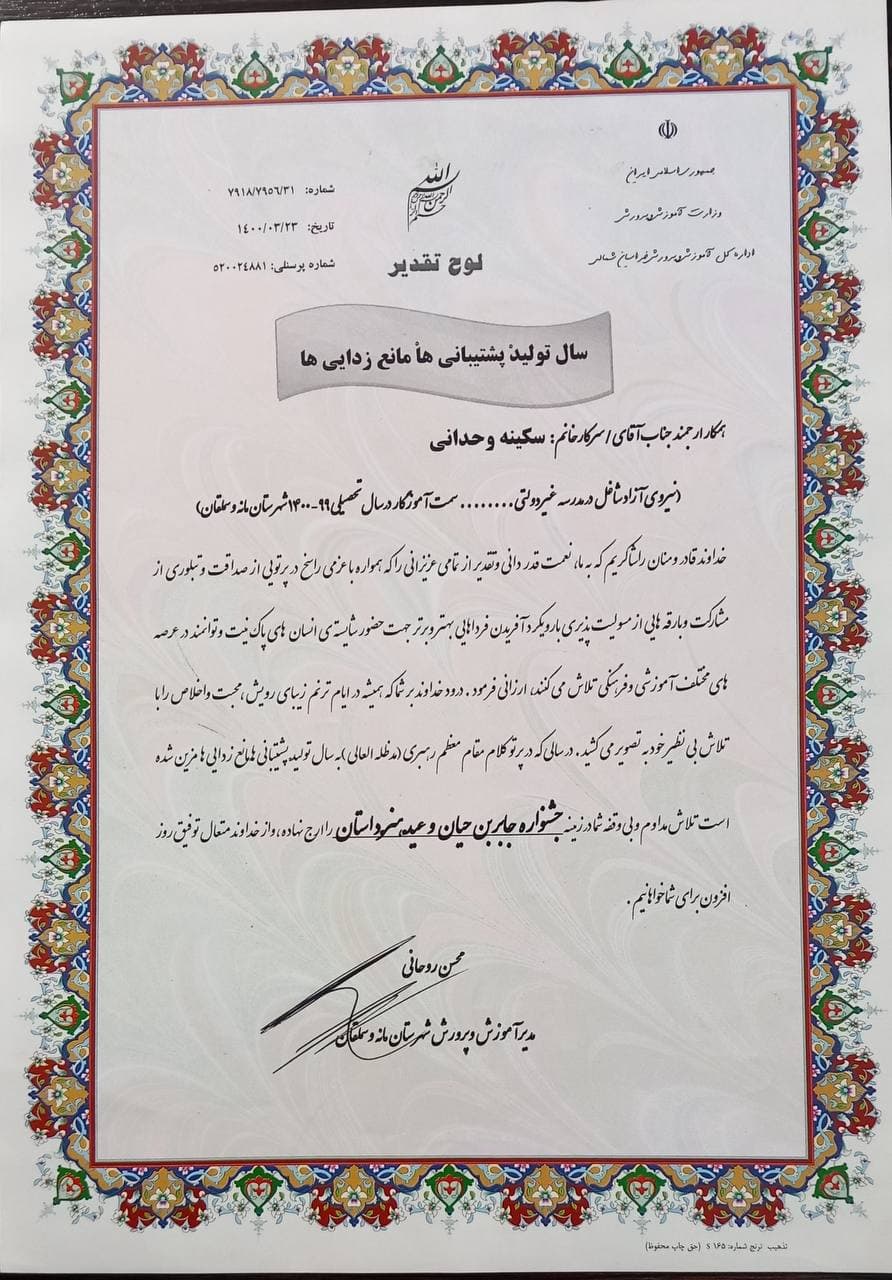 جمهوری اسلامی ایران
وزارت آموزش و پرورش
اداره کل آموزش و پرورش خراسان شمالی
بسم الله الرحمن الرحیم
لوح تقدیر
شماره: ۷۹۱۸/۷۹۵۶/۳۱
تاریخ: ۱۴۰۰/۰۳/۲۳
شماره پرسنلی: ۵۲۰۰۲۴۸۸۱
سال تولید پشتیبانی ها مانع زدایی ها
همکار ارجمند جناب آقای / سرکار خانم: سکینه وحدانی
(نیروی آزاد شاغل در مدرسه غیر دولتی ........ سمت آموزگار در سال تحصیلی ۹۹-۱۴۰۰ شهرستان مانه و سملقان)
خداوند قادر و منان را شاکریم که به ما، نعمت قدر دانی و تقدیر از تمامی عزیزانی را که همواره با عزمی راسخ در پرتویی از صداقت و تبلوری از
مشارکت و بارقه هایی از مسولیت پذیری با رویکرد آفریدن فردایی بهتر و برتر جهت حضور شایسته ی انسان های پاک نیت و توانمند در عرصه
های مختلف آموزشی و فرهنگی تلاش می کنند، ارزانی فرمود . درود خداوند بر شما که همیشه در ایام ترنم زیبای رویش، محبت و اخلاص را با
تلاش بی نظیر خود به تصویر می کشید . در سالی که در پرتو کلام مقام معظم رهبری (مد ظله العالی) به سال تولید، پشتیبانی ها، مانع زدایی ها مزین شده
است تلاش مداوم و بی وقفه شما در زمینه جشنواره جابر بن حیان و عید هنر داستان را ارج نهاده، و از خداوند متعال توفیق روز
افزون برای شما خواهانیم .
محسن روحانی
مدیر آموزش و پرورش شهرستان مانه و سملقان
تذهیب ترنج شماره: S ۱۶۵ (حق چاپ محفوظ)